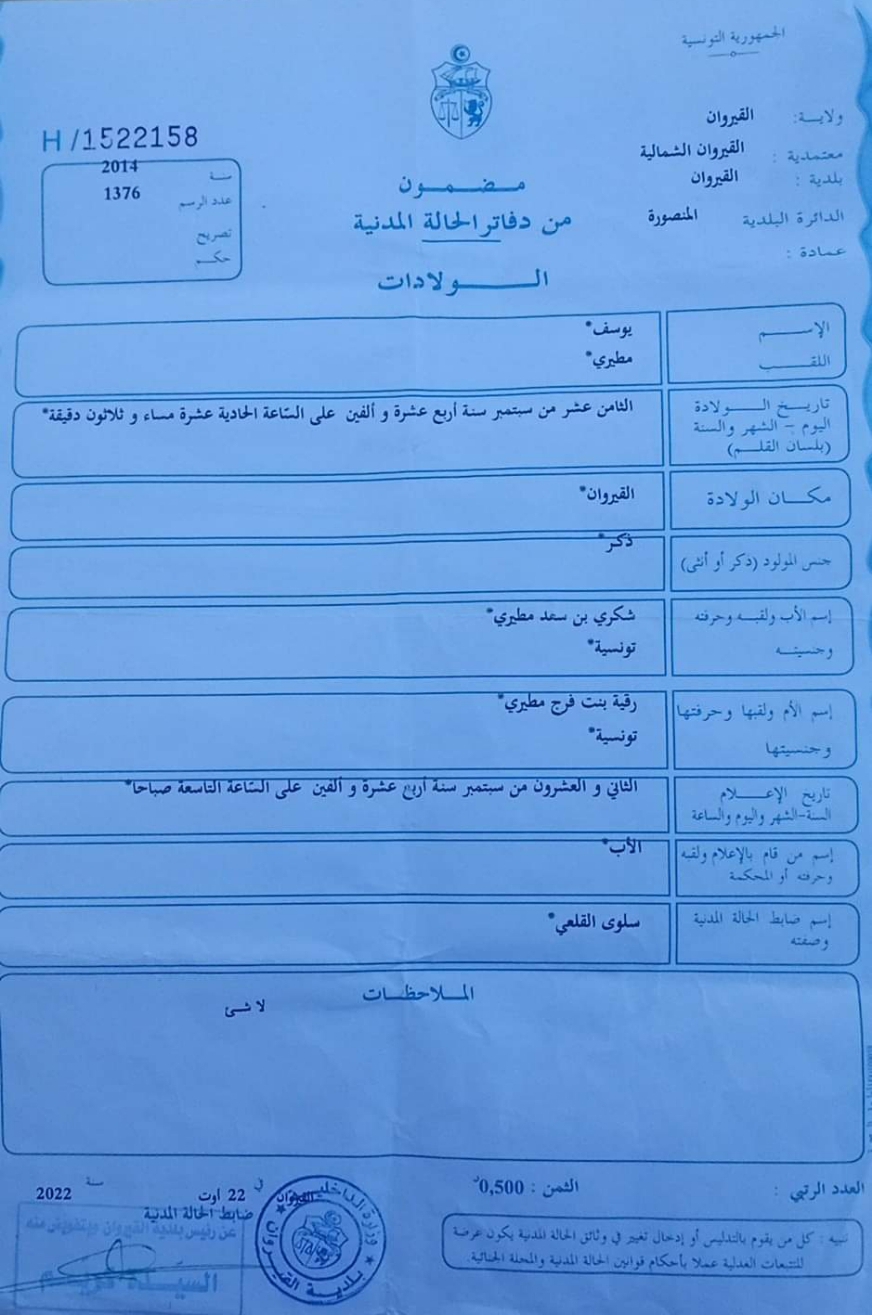 الجمهورية التونسية
ولاية: القيروان
معتمدية : القيروان الشمالية
بلدية : القيروان
الدائرة البلدية المنصورة
عمادة :
H/1522158
سنة 2014
عدد الرسم 1376
تصريح
حكم
مضمون
من دفاتر الحالة المدنية
الولادات
الإسم يوسف*
اللقب مطيري*
تاريخ الولادة
اليوم - الشهر والسنة
(بلسان القلم)
الثامن عشر من سبتمبر سنة أربع عشرة و ألفين على الساعة الحادية عشرة مساء و ثلاثون دقيقة*
مكان الولادة القيروان*
جنس المولود (ذكر أو أنثى) ذكر*
إسم الأب ولقبه وحرفته شكري بن سعد مطيري*
وجنسيته تونسية*
إسم الأم ولقبها وحرفتها رقية بنت فرج مطيري*
وجنسيتها تونسية*
تاريخ الإعلام
السنة-الشهر واليوم والساعة
الثاني و العشرون من سبتمبر سنة أربع عشرة و ألفين على الساعة التاسعة صباحا*
إسم من قام بالإعلام ولقبه
وحرفته أو المحكمة
الأب*
إسم ضابط الحالة المدنية
وصفته
سلوى القلعي*
الملاحظات
لا شئ
العدد الرتبي :
الثمن : 0,500د
القيروان في 22 أوت سنة 2022
ضابط الحالة المدنية
عن رئيس بلدية القيروان وبتفويض منه
السيدة
وزارة الداخلية
بلدية القيروان
تنبيه : كل من يقوم بالتدليس أو إدخال تغيير في وثائق الحالة المدنية يكون عرضة
للتتبعات العدلية عملا بأحكام قوانين الحالة المدنية والمجلة الجنائية.